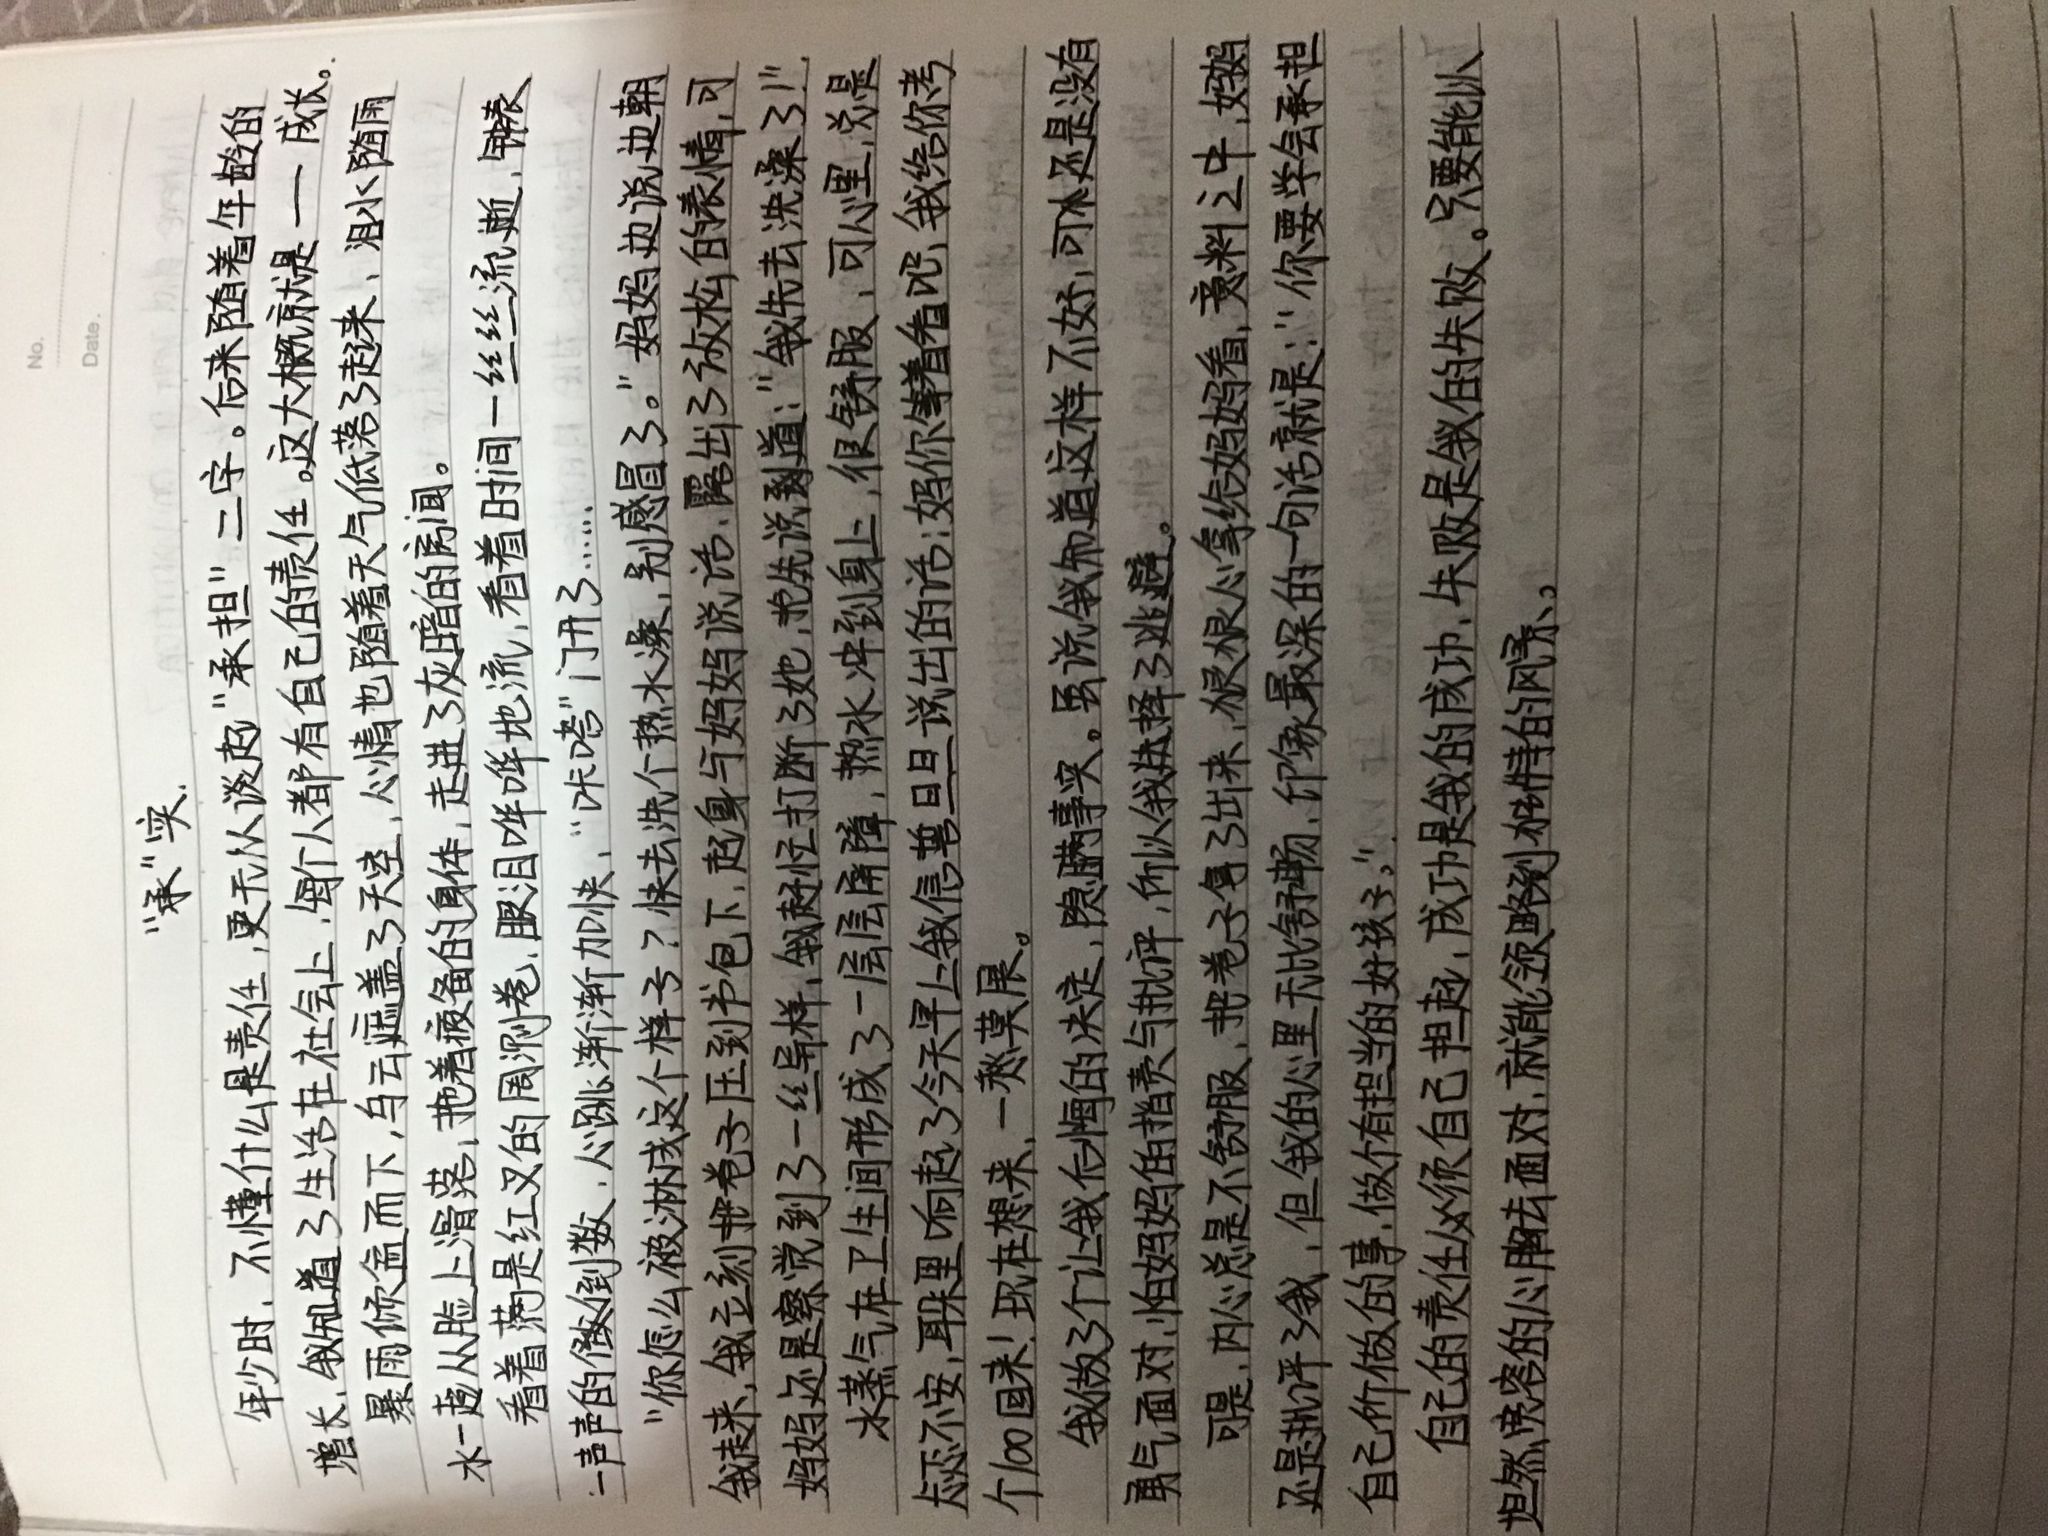 No.
Date.
“承”实.
年少时，不懂什么是责任，更无从谈起“承担”二字。后来随着年龄的
增长，我知道了生活在社会上，每个人都有自己的责任。这大概就是一成长。
暴雨倾盆而下，乌云遮盖了天空，心情也随着天气低落了起来，泪水随雨
水一起从脸上滑落，拖着疲备的身体，走进了灰暗的房间。
看着满是红叉的周测卷，眼泪哗哗地流，看着时间一丝丝流逝，钟表
一声声的像倒数，心跳渐渐加快，“咔嗒”门开了……
“你怎么被淋成这个样子？快去洗个热水澡，别感冒了。”妈妈边说边朝
我走来，我立刻把卷子压到书包下，起身与妈妈说话，露出了放松的表情，可
妈妈还是察觉到了一丝异样，我赶忙打断了她，抢先说道：“我先去洗澡了！”
水蒸气在卫生间形成了一层层屏障，热水冲到身上，很舒服，可心里总是
忐忑不安，耳朵里响起了今天早上我信誓旦旦说出的话：妈你等着看吧，我给你考
个100回来！现在想来，一愁莫展。
我做了个让我后悔的决定，隐瞒事实。虽说我知道这样不好，可还是没有
勇气面对，怕妈妈的指责与批评，所以我选择了逃避。
可是，内心总是不舒服，把卷子拿了出来，狠狠心拿给妈妈看，意料之中，妈妈
还是批评了我，但我的心里无比舒畅，印象最深的一句话就是：“你要学会承担
自己所做的事，做个有担当的好孩子。”
自己的责任必须自己担起，成功是我的成功，失败是我的失败。只要能以
坦然宽容的心胸去面对，就能领略到独特的风景。